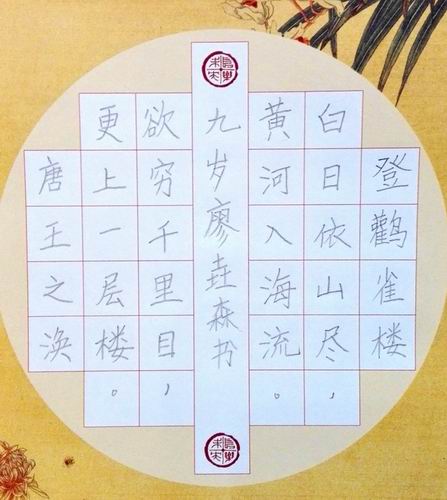 登鹳雀楼
白日依山尽，
黄河入海流。
九岁廖垚森书
欲穷千里目，
更上一层楼。
唐王之涣